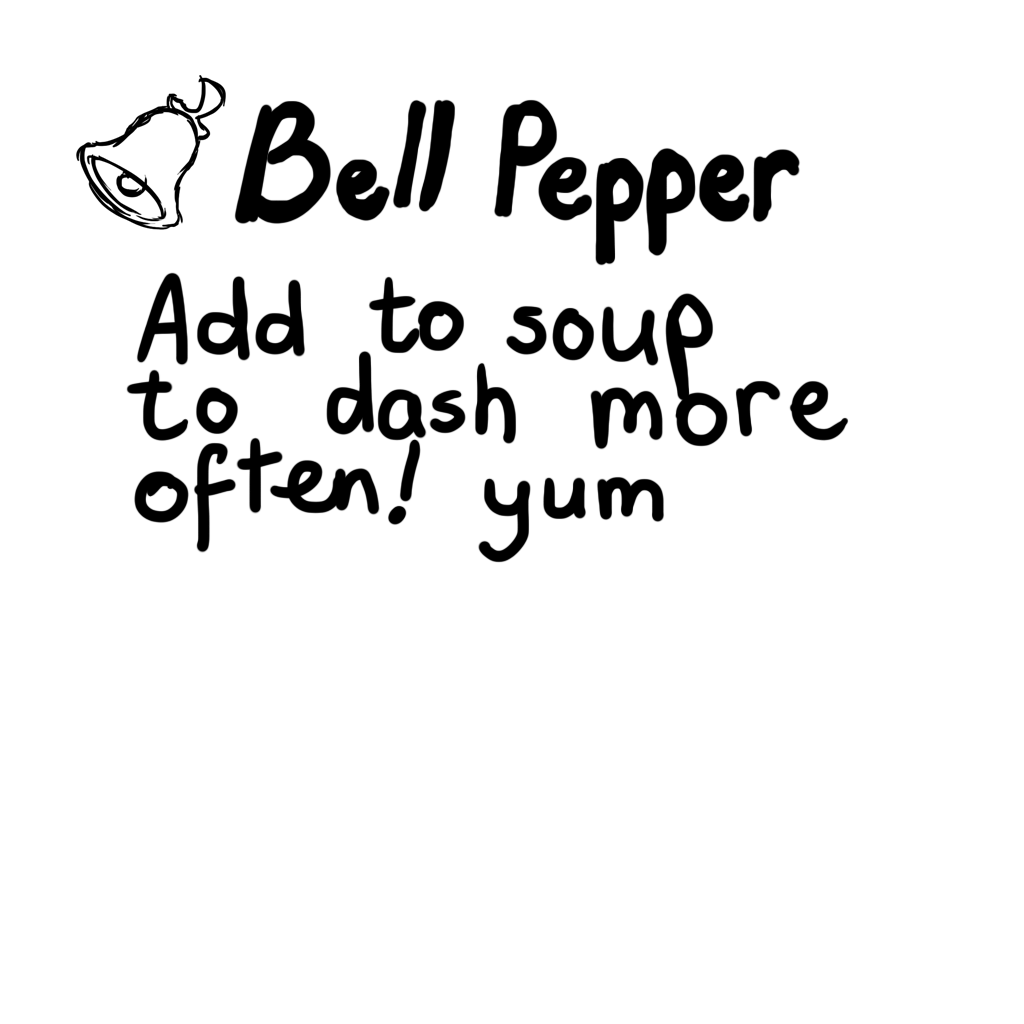 Bell Pepper
Add to soup
to dash more
often! yum